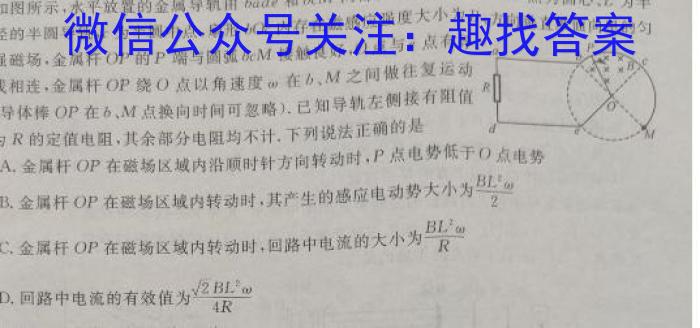 如图所示,水平放置的金属导轨由
微信公众号关注：趣找答案
强磁场,金属杆OP的P端与圆弧
相连,金属杆 OP 绕 O 点以角速度 ω 在 b、M 之间做往复运动
导体棒 OP 在 b、M 点换向时间可忽略). 已知导轨左侧接有阻值
为 R 的定值电阻,其余部分电阻均不计. 下列说法正确的是
A. 金属杆 OP 在磁场区域内沿顺时针方向转动时,P 点电势低于 O 点电势
B. 金属杆 OP 在磁场区域内转动时,其产生的感应电动势大小为 BL²ω/2
C. 金属杆 OP 在磁场区域内转动时,回路中电流的大小为 BL²ω/R
D. 回路中电流的有效值为 √2BL²ω/4R
R
B
c
O
d
e
M